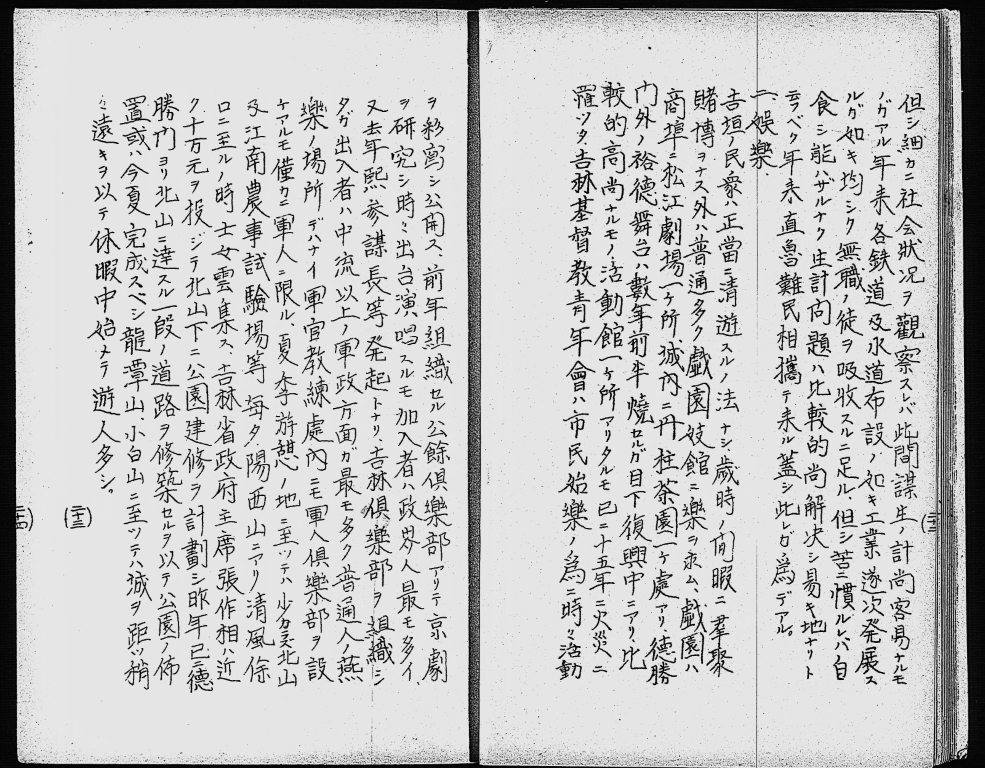 但シ細カニ社会狀况ヲ觀察スレバ此間謀生ノ計尚容易ナルモ
ノガアル年来各鉄道及水道布設ノ如キ工業遂次発展ス
ルガ如キ均シク無職ノ徒ヲ吸收スルニ足ル、但シ苦ニ慣ルレバ自
食シ能ハザルナク生計問題ハ比較的尚解决シ易キ地ナリト
云フベク年来直魯難民相攜テ来ル蓋シ此レガ爲デアル。
二、娯樂
吉垣ノ民衆ハ正當ニ清遊スルノ法ナシ、歲時ノ間暇ニ羣聚
賭博ヲナス外ハ普通多ク戲園妓館ニ樂ヲ求ム、戲園ハ
商埠ニ松江劇場一ヶ所、城内ニ丹桂茶園一ヶ處アリ、德勝
門外ノ裕德舞台ハ數年前半燒セルガ目下復興中ニアリ、比
較的高尚ナルモノ活動館一ヶ所アリタルモ已ニ十五年ニ火災ニ
罹ツタ、吉林基督教青年會ハ市民始樂ノ爲ニ時々活動
(二十三)
ヲ彩寫シ公開ス、前年組織セル公餘俱樂部アリテ京劇
ヲ研究シ時々出台演唱スルモ加入者ハ政界人最モ多イ、
又去年熙參謀長等発起トナリ、吉林俱樂部ヲ組織シ
タガ出入者ハ中流以上ノ軍政方面ガ最モ多ク普通人ノ燕
樂ノ場所デハナイ軍官教練處内ニモ軍人俱樂部ヲ設
ケアルモ僅カニ軍人ニ限ル、夏季游憩ノ地ニ至ツテハ少カラズ北山
及江南農事試驗場等每夕陽西山ニアリ清風徐
ロニ至ルノ時士女雲集ス、吉林省政府主席張作相ハ近
ク十万元ヲ投ジテ北山下ニ公園建修ヲ計劃シ昨年已ニ德
勝門ヨリ北山ニ達スル一段ノ道路ヲ修築セルヲ以テ公園ノ佈
置或ハ今夏完成スベシ龍潭山、小白山ニ至ツテハ城ヲ距ツ稍
々遠キヲ以テ休暇中始メテ遊人多シ。
(二十三)